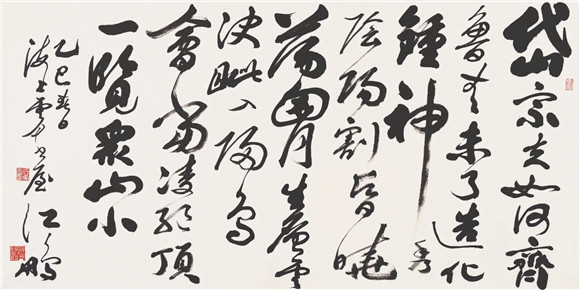 岱宗夫如何齊
魯青未了造化
鍾神秀
陰陽割昏曉
蕩胸生層雲
決眦入歸鳥
會當凌絕頂
一覽衆山小
乙巳春日
海上雲書屋
江鵬